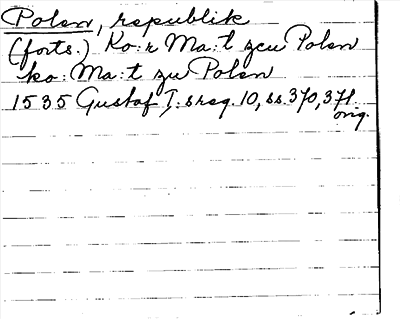 Polen, republik
(forts.) Ko:r Ma:t zcu Polen
ko: Ma:t zu Polen
1535 Gustaf I:s reg. 10, ss. 370, 371.
orig.